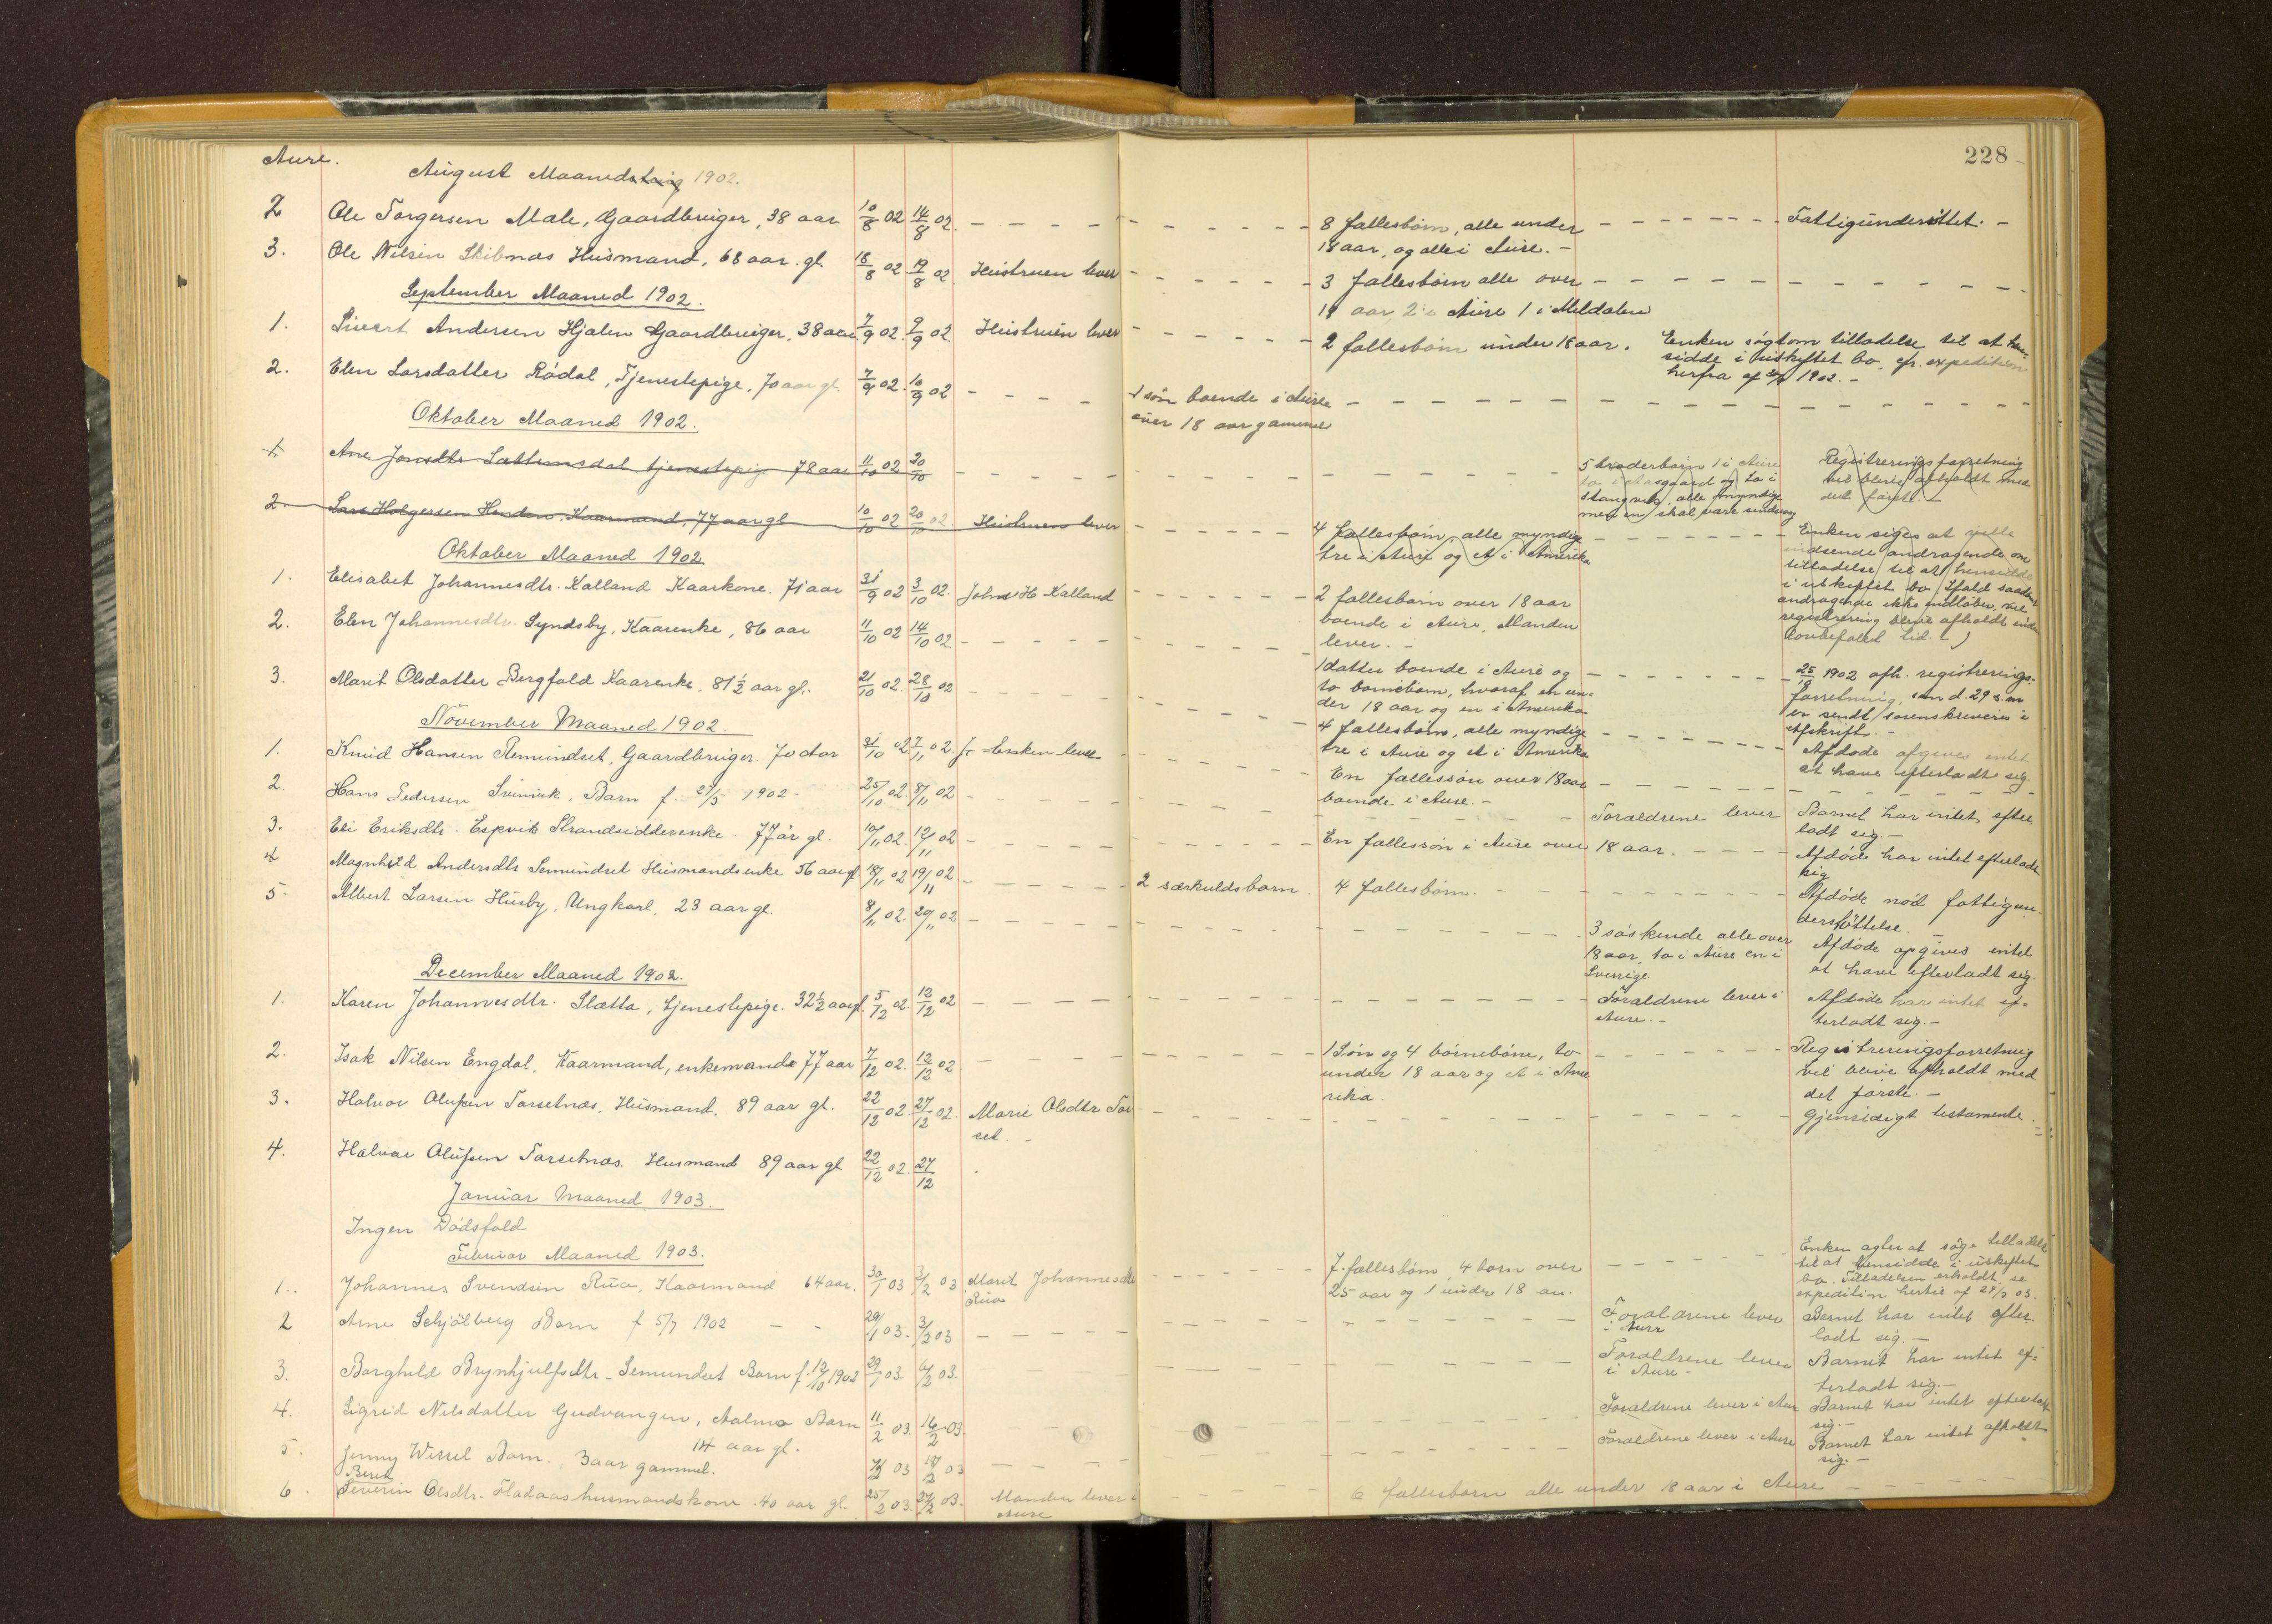 Aure.
228
August Maaned 1902.
2 Ole Torgersen Male, Gaardbruger, 38 aar 10/8 02 14/8 02. 8 fællesbörn, alle under Fattigunderstöttet. -
18 aar, og alle i Aure. -
3. Ole Nilsen Skibnæs Husmand, 68 aar gl. 18/8 02 19/8 02 Hustruen lever 3 fællesbörn alle over
18 aar 2 i Aure 1 i Meldalen
September Maaned 1902.
1. Sivert Andersen Hjalen Gaardbruger, 38 aar 7/9 02. 9/9 02. Hustruen lever 2 fællesbörn under 18 aar. Enken sögt om tilladelse til at hen-
sidde i uskiftet bo, cfr. expedition
herfra af 1902. -
2. Elen Larsdatter Rödal, Tjenestepige, 70 aar gl. 7/9 02. 10/9 02 1 sön boende i Aure
over 18 aar gammel
Oktober Maaned 1902.
1. Ane Jonsdtr. tjenestepige 78 aar 11/10 02 20/10 5 broderbörn 1 i Aure Registreringsforretning
to i Aasgaard og to i vil blive afholdt med
Stangvik, alle myndige det förste. -
men en skal være sindsvag
2. Lars Holgersen Kaarmand, 77 aar gl 10/10 02 20/10 02. Hustruen lever 4 fællesbörn, alle myndige Enken siges at ville
tre i Aure og et i Amerika indsende andragende om
tilladelse til at hensidde
i uskiftet bo. Ifald saadant
andragende ikke indlöber, vil
registrering blive afholdt inden
lovbefalet tid. -)
Oktober Maaned 1902
1. Elisabet Johannesdtr. Kalland Kaarkone. 71 aar 31/9 02 3/10 02. Johns H Kalland 2 fællesbörn over 18 aar
boende i Aure, Manden
lever. -
2. Elen Johannesdtr. Lyndsby, Kaarenke, 86 aar 11/10 02 14/10 02 1 datter boende i Aure og 25/10 1902 afh. registrerings-
to börnebörn, hvoraf en un- forretning, som d. 29 s.m
der 18 aar og en i Amerika er sendt sorenskriveren i
Afskrift. -
3. Marit Olsdatter Bergfald Kaarenke, 81 1/2 aar gl. 21/10 02. 28/10 02 4 fællesbörn, alle myndige Afdöde opgives intet
tre i Aure og et i Amerika at have efterladt sig.
November Maaned 1902.
1. Knud Hansen Remundset, Gaardbruger. 70 aar 31/10 02 7/11 02. Enken lever En fællessön over 18 aar
boende i Aure. -
2. Hans Pedersen Sviniik, Barn f. 27/5 1902 - 25/10 02. 8/11 02 Forældrene lever Barnet har intet efter
ladt sig. -
3. Eli Eriksdtr. Espvik Strandsidderenke. 77 år gl. 10/11 02. 12/11 02 En fællessön i Aure over 18 aar. Afdöde har intet efterladt
sig
4 Magnhild Andersdtr Semundset Husmandsenke 56 aar gl. 18/11 02 19/11 02 2 særkuldsbarn. 4 fællesbörn. Afdöde nöd fattigun-
derstöttelse. -
5. Albert Larsen Husby, Ungkarl, 23 aar gl. 8/11 02. 29/11 02 3 söskende alle over Afdöde opgives intet
18 aar, to i Aure en i at have efterladt sig.
Sverige.
December Maaned 1902.
1. Karen Johannesdtr. Slatta, tjenestepige. 32 1/2 aar gl. 5/12 02. 12/12 02 Forældrene lever i Afdöde har intet ef-
Aure. - terladt sig. -
2. Isak Nilsen Engdal, Kaarmand, enkemand 77 aar 7/12 02. 12/12 02 1 Sön og 4 börnebörn, to Registreringsforretning
under 18 aar og et i Ame vil blive afholdt med
rika det förste. -
3. Halvor Olufsen Torsetnæs, Husmand. 89 aar gl. 22/12 02 27/12 02. Marie Olsdtr Tor Gjensidigt testamente.
set. -
4. Halvor Olufsen Torsetnæs. Husmand 89 aar gl 22/12 02. 27/12
Januar Maaned 1903.
Ingen Dödsfald
Februar Maaned 1903.
1. Johannes Svendsen Rua, Kaarmand 64 aar. 30/1 03 3/2 03 Marit Johannesdtr 7 fællesbörn, 4 barn over Enken agter at söge tilladelse
Rua 25 aar og 1 under 18 aar. til at hensidde i uskiftet
bo. Tilladelsen erholdt, se
expedition hertil af 03.
2 Arne Schjölberg Barn f 5/7 1902 - - 29/1 03. 3/2 03 Forældrene lever Barnet har intet efter
i Aure ladt sig. -
3. Borghild Brynhjulfsdtr. Semundset Barn f. 12/10 1902 29/1 03 6/2 03. Forældrene lever Barnet har intet ef-
i Aure - terladt sig. -
4. Sigrid Nilsdatter Gudvangen, Aalmo Barn 11/2 03. 16/2 03. Forældrene lever i Aure Barnet har intet efterladt
14 aar gl. sig. -
5. Jenny Wessel Barn., 3 aar gammel. 03 18/2 03 Forældrene lever i Aure Barnet har intet afholdt
sig. -
Berit
6. Severin Olsdtr. Fladaas husmandskone 40 aar gl. 25/2 03. 27/2 03. Manden lever i 6 fællesbarn alle under 18 aar i Aure
Aure